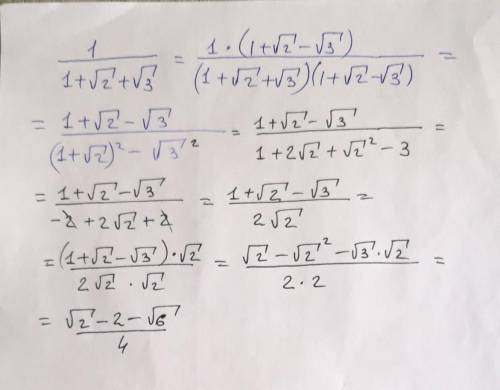 1/(1+√2+√3) = 1·(1+√2−√3)/((1+√2+√3)(1+√2−√3)) =
= (1+√2−√3)/((1+√2)²−√3²) = (1+√2−√3)/(1+2√2+√2²−3) =
= (1+√2−√3)/(−2+2√2+2) = (1+√2−√3)/(2√2) =
= ((1+√2−√3)·√2)/(2√2·√2) = (√2−√2²−√3·√2)/(2·2) =
= (√2−2−√6)/4